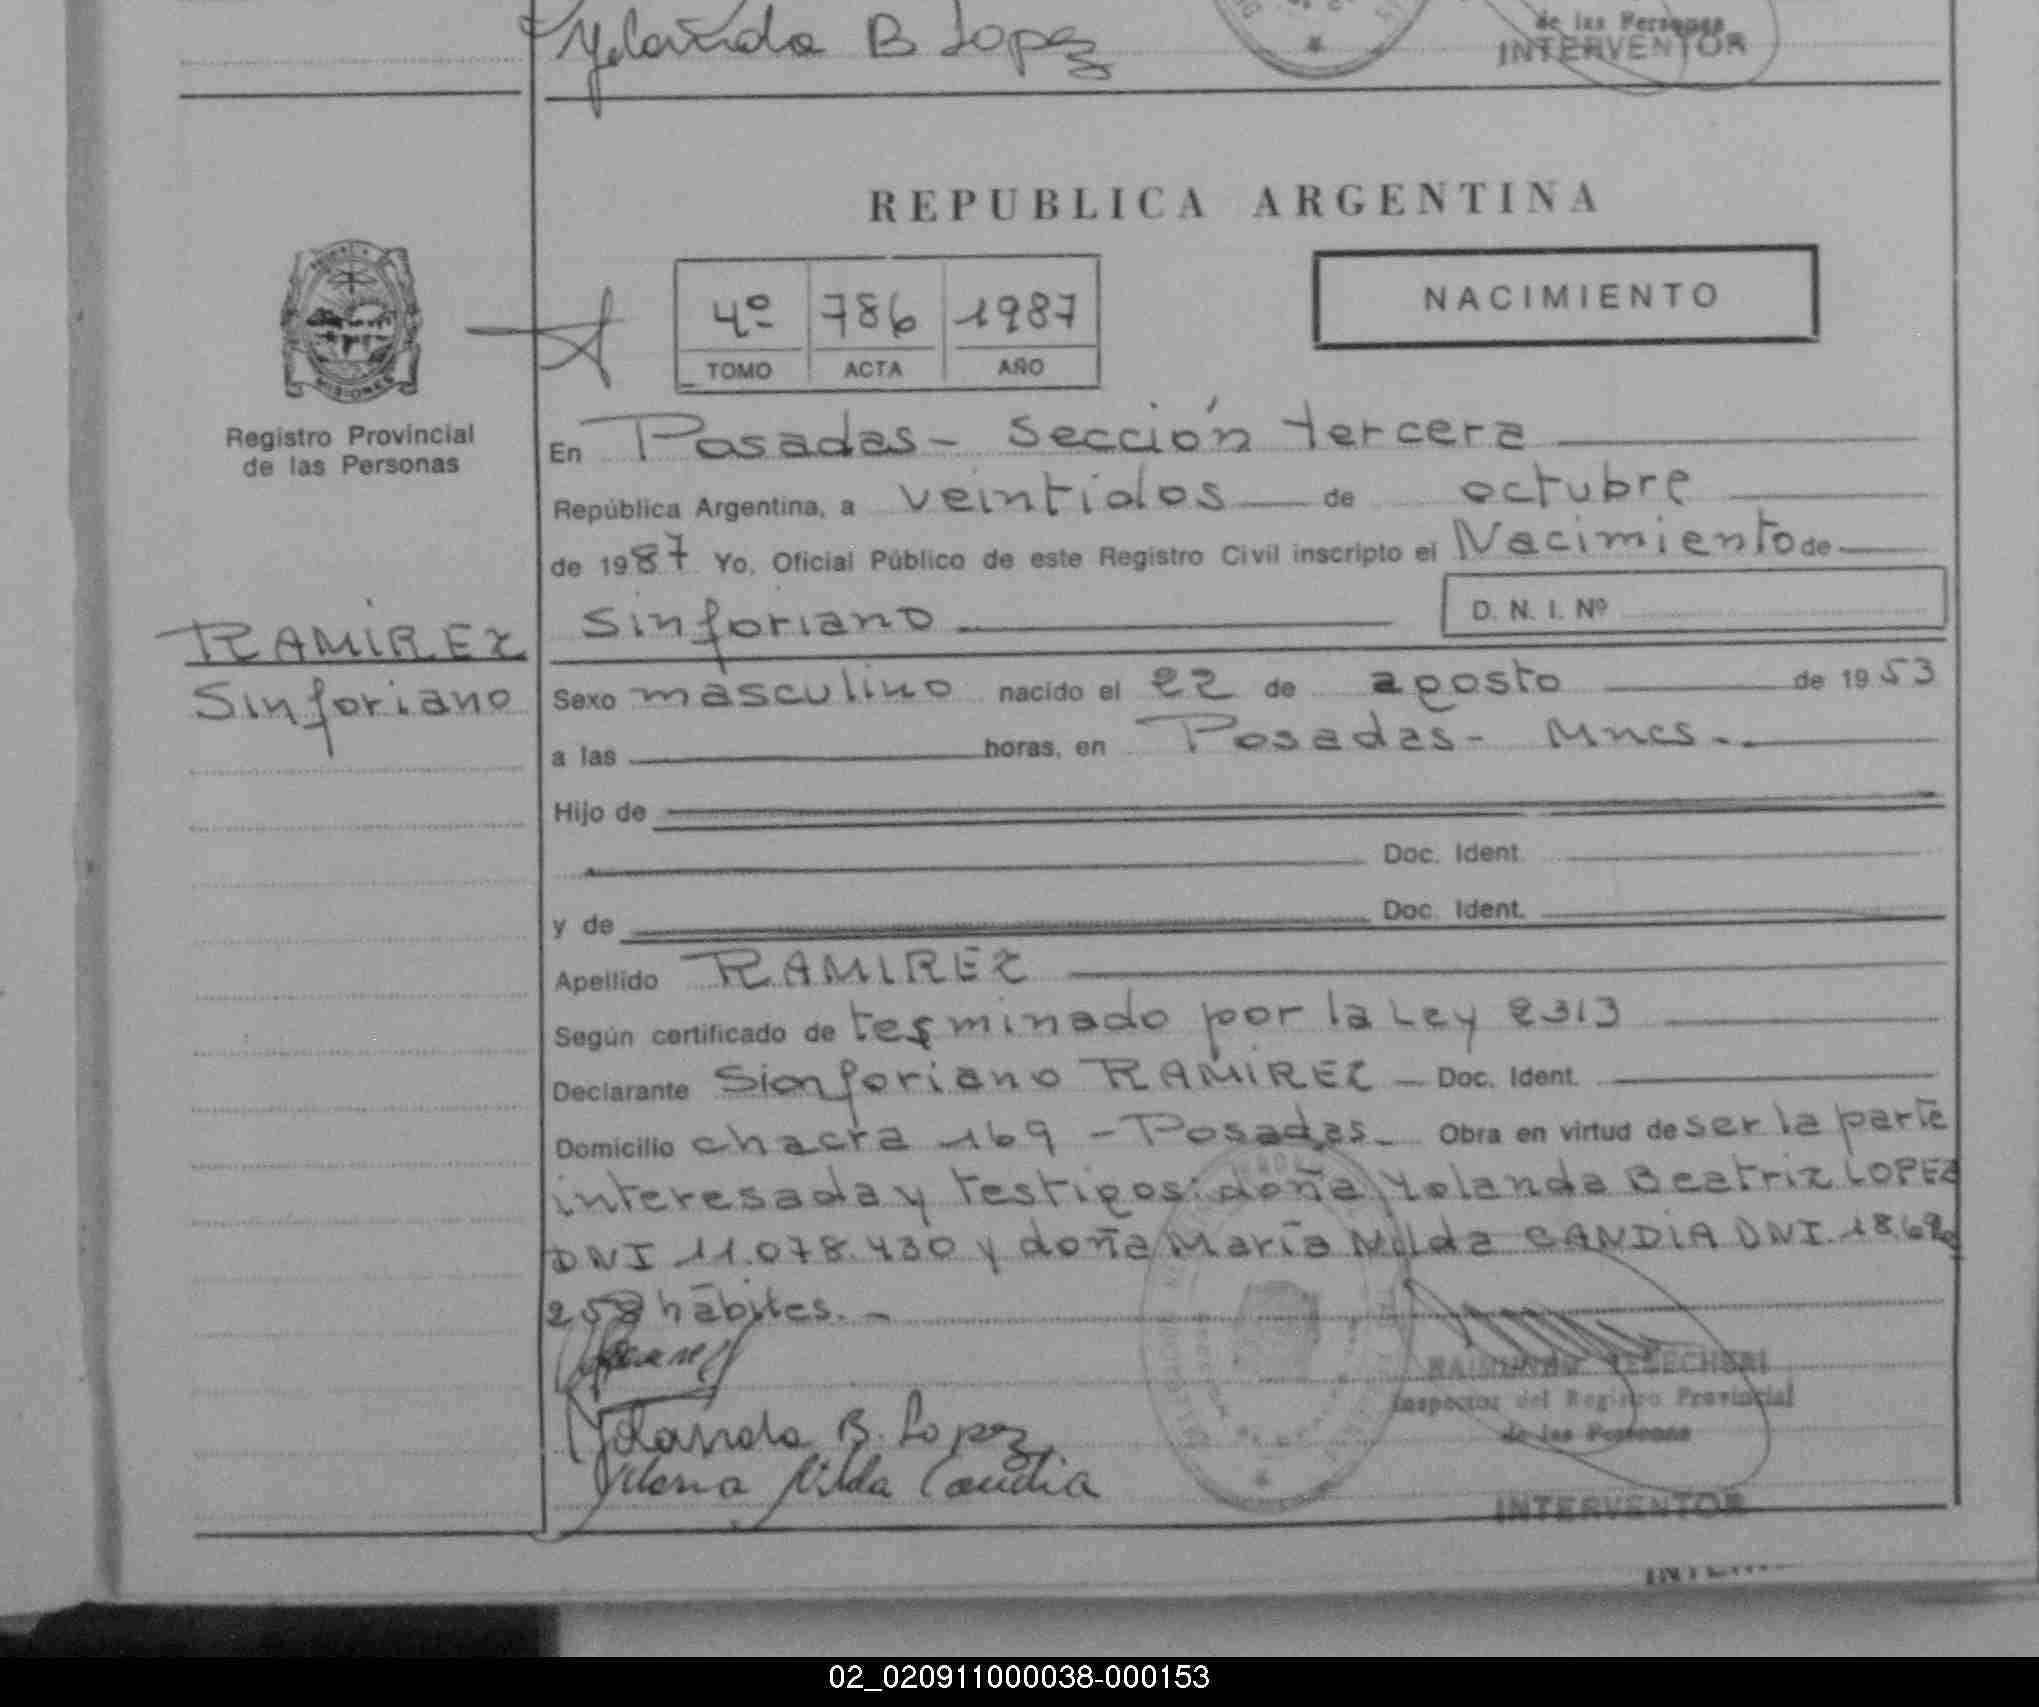 Yolanda B Lopez
de las Personas
INTERVENTOR
REPUBLICA ARGENTINA
4º 786 1987
TOMO ACTA AÑO
NACIMIENTO
MISIONES
Registro Provincial
de las Personas
En Posadas - Sección tercera
República Argentina, a veintidos de octubre
de 1987 Yo, Oficial Público de este Registro Civil inscripto el Nacimiento de
RAMIREZ
Sinforiano
Sinforiano
D. N. I. Nº
Sexo masculino nacido el 22 de agosto de 1953
a las horas, en Posadas - Mnes.-
Hijo de
Doc. Ident.
y de Doc. Ident.
Apellido RAMIREZ
Según certificado de terminado por la Ley 2313
Declarante Sionforiano RAMIREZ - Doc. Ident.
Domicilio chacra 169 - Posadas - Obra en virtud de ser la parte
interesada y testigos: doña Yolanda Beatriz LOPEZ
DNI 11.078.430 y doña María Nilda CANDIA DNI.
258 hábiles. -
Inspector del Registro Provincial
de las Personas
Yolanda B. Lopez
Maria Nilda Candia
INTERVENTOR
02_020911000038-000153